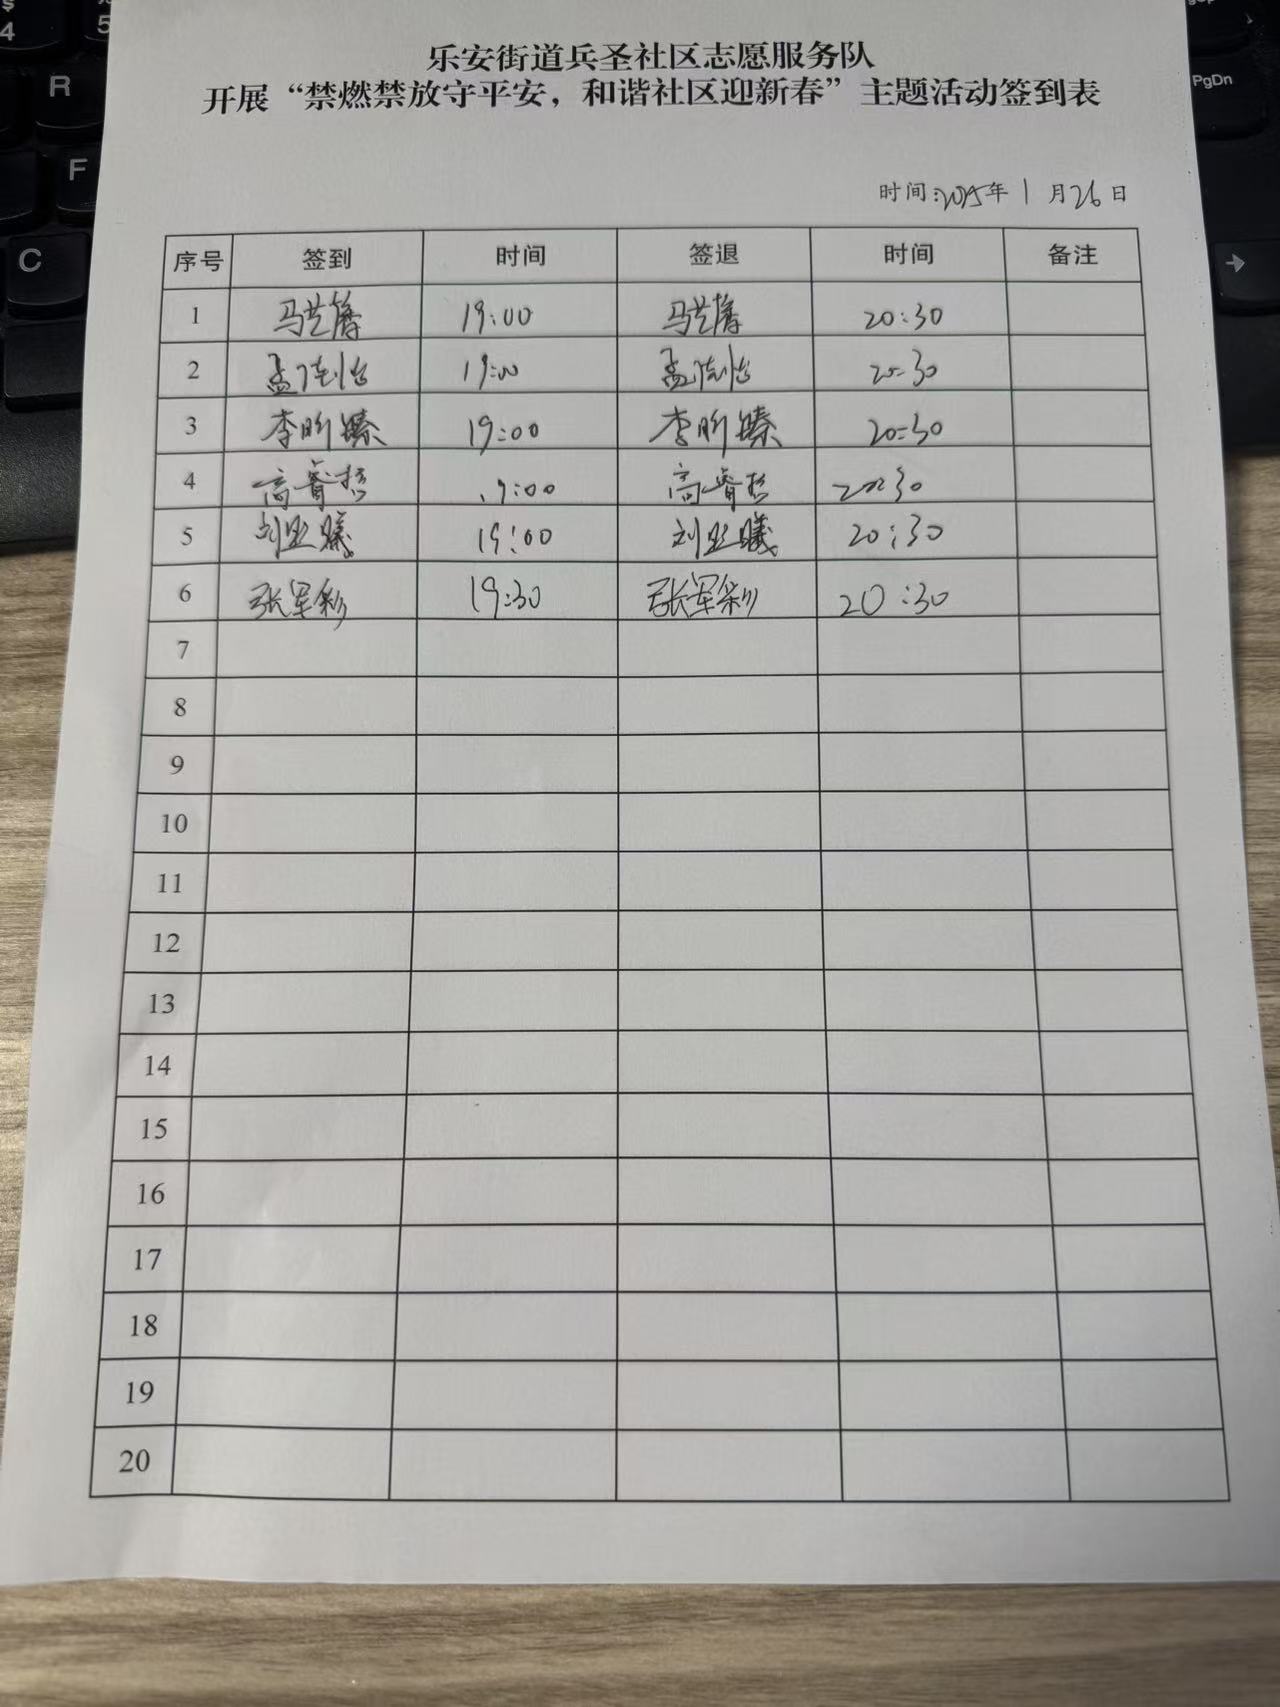 乐安街道兵圣社区志愿服务队
开展“禁燃禁放守平安，和谐社区迎新春”主题活动签到表
时间:2025年 1 月26日
序号 签到 时间 签退 时间 备注
1 19:00 20:30
2 19:00 20:30
3 李昕臻 19:00 李昕臻 20:30
4 高睿哲 19:00 高睿哲 20:30
5 19:00 20:30
6 张军彩 19:30 张军彩 20:30
7
8
9
10
11
12
13
14
15
16
17
18
19
20
$
4
%
5
R
F
C
PgDn
→